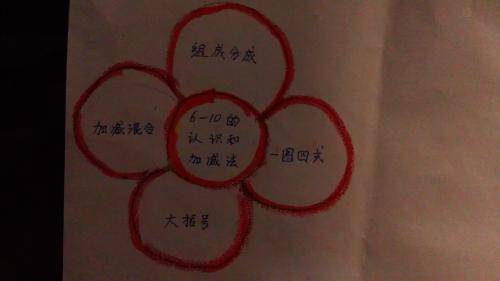 组成分成
加减混合
6-10的
认识和
加减法
一图四式
大括号